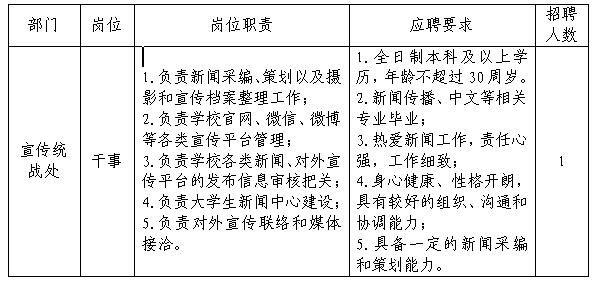 部门
岗位
岗位职责
应聘要求
招聘
人数
宣传统
战处
干事
1.负责新闻采编、策划以及摄
影和宣传档案整理工作；
2.负责学校官网、微信、微博
等各类宣传平台管理；
3.负责学校各类新闻、对外宣
传平台的发布信息审核把关；
4.负责大学生新闻中心建设；
5.负责对外宣传联络和媒体
接洽。
1.全日制本科及以上学
历，年龄不超过30周岁。
2.新闻传播、中文等相关
专业毕业；
3.热爱新闻工作，责任心
强，工作细致；
4.身心健康、性格开朗，
具有较好的组织、沟通和
协调能力；
5.具备一定的新闻采编
和策划能力。
1